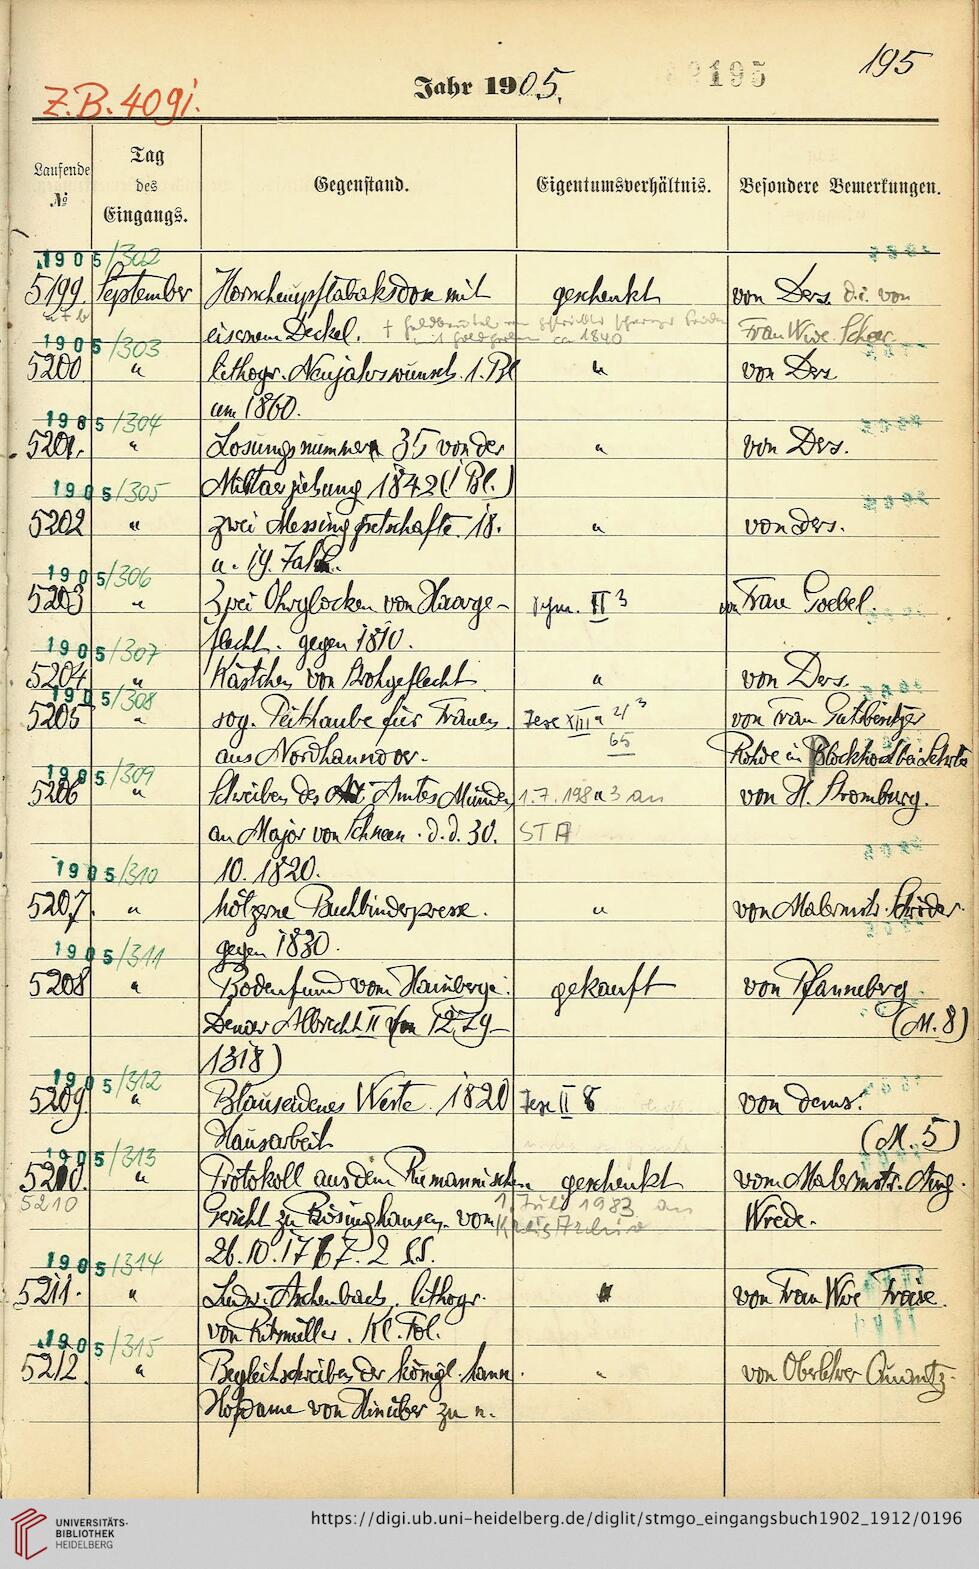 195
Z.B. 409i.
Jahr 1905.
195
Laufende
№
Tag
des
Eingangs.
Gegenstand.
Eigentumsverhältnis.
Besondere Bemerkungen.
1905/302
5199. September Hornschnupftabaksdose mit geschenkt von Ders. d.i. von
a + b eisernem Deckel. Frau Wwe. Scheer.
1905/303
5200 " lithogr. Neujahrswunsch. 1. Bl " von Ders
um 1860.
1905/304
5201. " Losungsnummer 35 von der " von Ders.
Militärziehung 1842 (1 Bl.)
1905/305
5202 " zwei Messingpetschafte. 18. " von Ders.
u. 19. Jahrh.
1905/306
5203 " Zwei Ohrglocken von Haarge- II 3 von Frau Goebel.
flecht. gegen 1810.
1905/307
5204 " Kästchen von Strohgeflecht " von Ders.
1905/308
5205 " sog. Peithaube für Frauen XIII von Frau Gutsbesitzer
aus Nordhannover. 65 Rohde in Blockhof bei Lehrte
1905/309
5206 " Schreiben des Amtes Münden 1.7.198 3 an von H. Stromburg.
an Major von Schneen. d.d. 30. STA
10. 1820.
1905/310
5207. " hölzerne Buchbinderpresse. " von Malermstr. Schröder.
gegen 1830.
1905/311
5208 " Bodenfund vom Hainberge: gekauft von Pfanneberg
Denar Albrecht II (von 1279- (M. 8)
1318)
1905/312
5209. " Blauseidenes Weste. 1820 II 8 von dems.
Hausarbeit (M. 5)
1905/313
5210. " Protokoll aus dem Riemannischen geschenkt vom Malermstr. Aug.
5210 Gericht zu Bösinghausen. vom 1. Juli 1983 an Wrede.
KreisArchiv
26.10.1767. 2 SS.
1905/314
5211. " Ludw. Aschenbach. lithogr. " von Frau Wwe Froise.
von Ritmüller. Kl. Fol.
1905/315
5212. " Begleitschreiben der königl. hann. " von Oberlehrer
Hofdame von Hinüber zu n.
UNIVERSITÄTS-
BIBLIOTHEK
HEIDELBERG
https://digi.ub.uni-heidelberg.de/diglit/stmgo_eingangsbuch1902_1912/0196